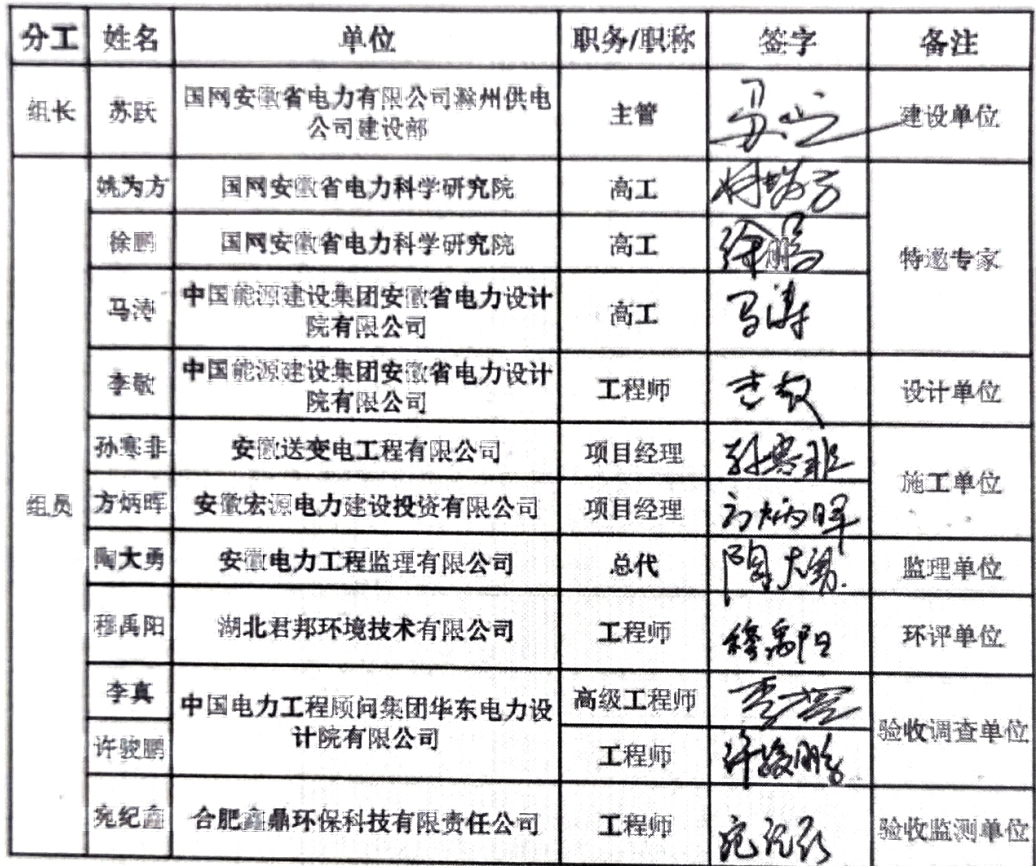 分工 姓名 单位 职务/职称 签字 备注
组长 苏跃 国网安徽省电力有限公司滁州供电 主管 建设单位
公司建设部
姚为方 国网安徽省电力科学研究院 高工 姚为方
徐鹏 国网安徽省电力科学研究院 高工 徐鹏 特邀专家
马涛 中国能源建设集团安徽省电力设计 高工 马涛
院有限公司
李敏 中国能源建设集团安徽省电力设计 工程师 设计单位
院有限公司
孙寒非 安徽送变电工程有限公司 项目经理 孙寒非
施工单位
组员 方炳晖 安徽宏源电力建设投资有限公司 项目经理 方炳晖
陶大勇 安徽电力工程监理有限公司 总代 陶大勇 监理单位
穆禹阳 湖北君邦环境技术有限公司 工程师 穆禹阳 环评单位
李真 中国电力工程顾问集团华东电力设 高级工程师
计院有限公司 验收调查单位
许骏鹏 工程师 许骏鹏
宛纪鑫 合肥鑫鼎环保科技有限责任公司 工程师 验收监测单位